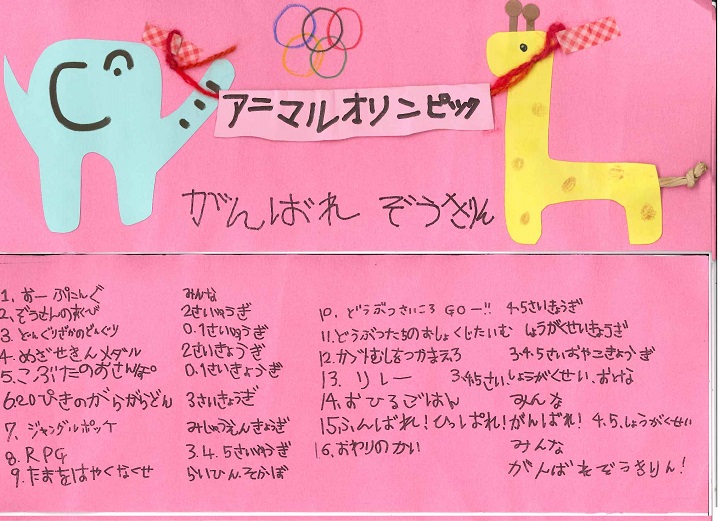 アニマルオリンピック
がんばれ ぞうきりん
1、おーぷにんぐ みんな
2、ぞうさんのあくび 2さいゆうぎ
3、どんぐりざかのどんぐり 0.1さいゆうぎ
4、めざせきんメダル 2さいきょうぎ
5、こぶたのおさんぽ 0.1さいきょうぎ
6、20ぴきのがらがらどん 3さいきょうぎ
7、ジャングルポッケ みしゅうえんきょうぎ
8、RPG 3.4.5さいゆうぎ
9、たまをはやくなくせ らいひん.そふぼ
10、どうぶつさいころ GO-!! 4.5さいきょうぎ
11、どうぶつたちのおしょくじたいむ しょうがくせいきょうぎ
12、かぶとむしをつかまえろ 3.4.5さいおやこきょうぎ
13、リレー 3.4.5さい.しょうがくせい.おとな
14、おひるごはん みんな
15、ふんばれ!ひっぱれ!がんばれ! 4.5.しょうがくせい
16、おわりのかい みんな
がんばれぞうきりん!